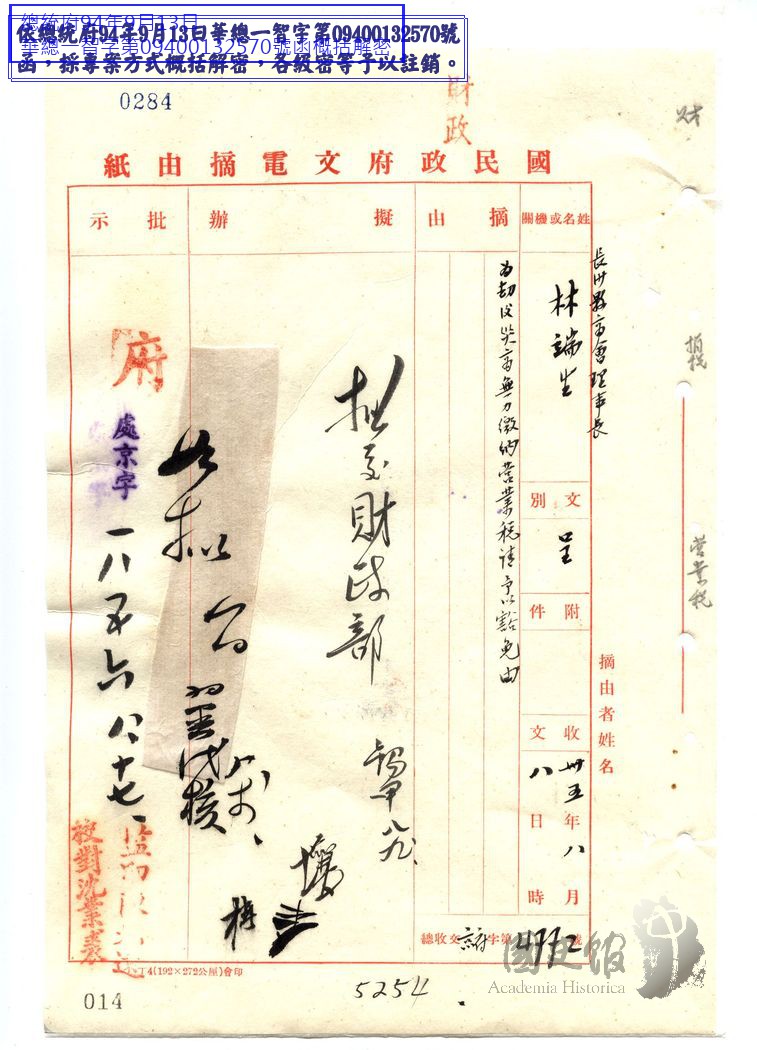 總統府94年9月13日
華總一智字第09400132570號函概括解密
依總統府94年9月13日華總一智字第09400132570號
函，採專案方式概括解密，各級密等予以註銷。
0284
財政
財
國民政府文電摘由紙
姓名或機關
摘由
擬辦
批示
長沙縣商會理事長
林端生
為劫後災商無力繳納營業稅請予以豁免由
文別
呈
附件
收文
卅五年八月八日時
摘由者姓名
總收文京府字第4772號
擬交財政部
如擬
代核
府
處京字
一八五六
八、十七、
校對沈業
營業稅
4(192×272公厘)會印
014
5254
國史館
Academia Historica